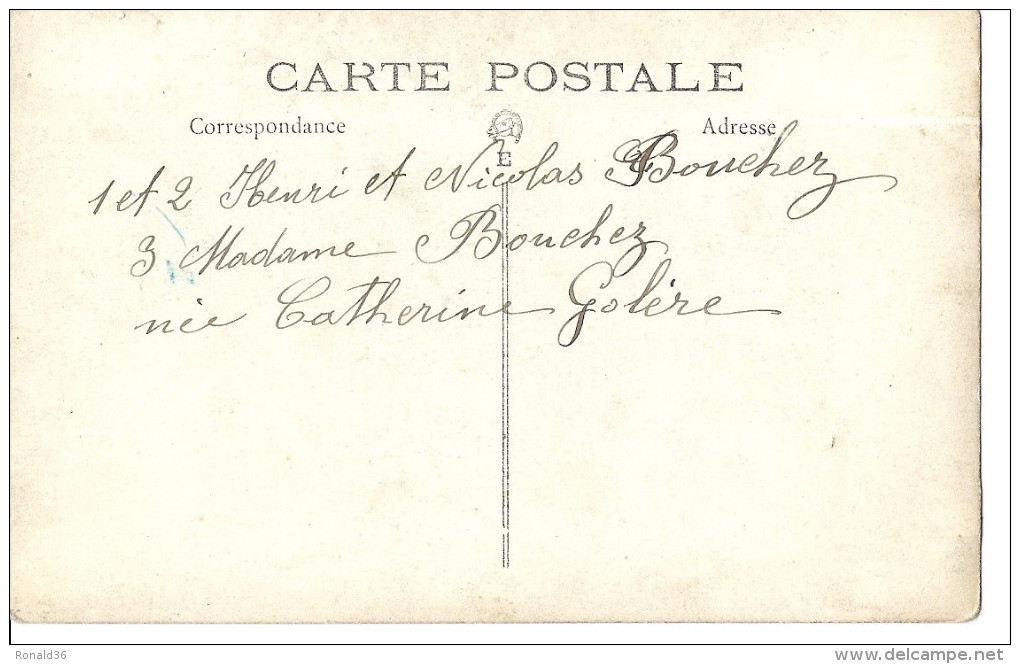 CARTE POSTALE
Correspondance
Adresse
E
1 et 2 Henri et Nicolas Bouchez
3 Madame Bouchez
née Catherine Golère
Ronald36
www.delcampe.net